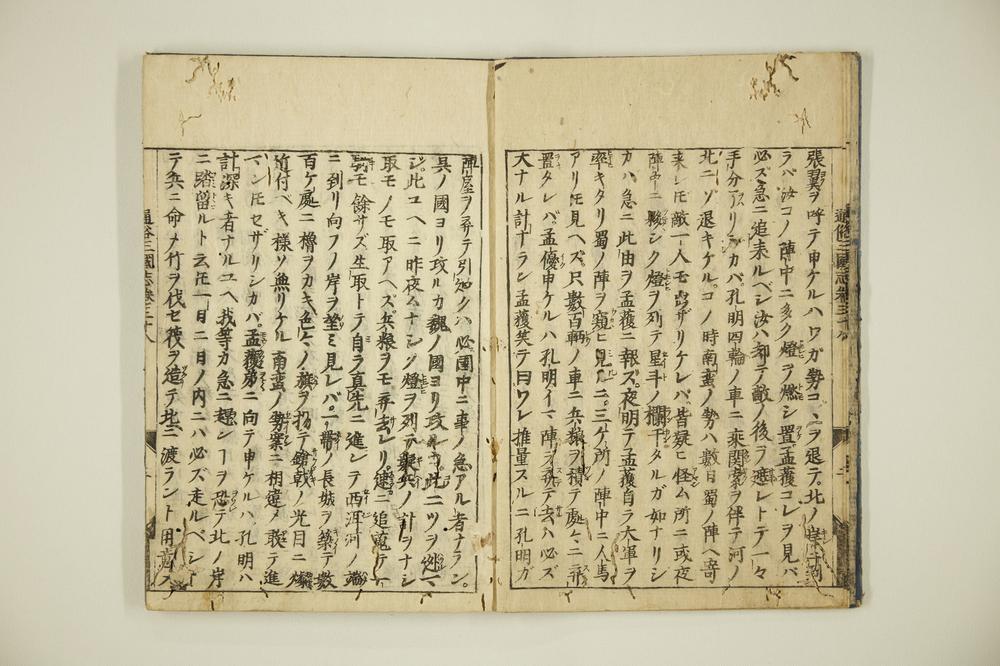 張翼ヲ呼テ申ケルハワガ勢コヽヲ退テ北ノ岸ニ
ラバ汝コノ陣中ニ多ク燈ヲ燃シ置孟獲コレヲ見バ
必ズ急ニ追来ルベシ汝ハ却テ敵ノ後ヲ遮レトテ一々
手分アリシカバ孔明四輪ノ車ニ乗関索ヲ伴テ河ノ
北ニゾ退キケルコノ時南蛮ノ勢ハ数日蜀ノ陣ヘ寄
来レ𪜈敵一人モ出ザリケレバ皆疑ヒ怪ム所ニ或夜
陣中ニ シク燈ヲ列テ星斗ノ欄干タルガ如ナリシ
カハ急ニ此由ヲ孟獲ニ報ズ夜明テ孟獲自ラ大軍ヲ
率キタリ蜀ノ陣ヲ窺ヒ見ルニ三ケ所ノ陣中ニ人馬
アリ𪜈見ヘズ只数百輌ノ車ニ兵粮ヲ積テ處々ニ弃
置タレバ孟優申ケルハ孔明イマ陣ヲ弃テ去ハ必ズ
大ナル計ナラン孟獲笑テ曰ワレ推量スルニ孔明ガ
陣屋ヲ弃テ引退クハ必國中ニ事ノ急アル者ナラン。
呉ノ國ヨリ攻ルカ魏ノ國ヨリ攻ルカ此二ツヲ
ジ。此ユヘニ昨夜ムナシク燈ヲ列テ疑兵ノ計ヲナシ
取モノモ取アヘズ。兵粮ヲモ弃去レリ。速ニ追蒐テ一
モ餘サズ生取トテ自ラ真先ニ進ンテ西洱河ノ
ニ到リ向フノ岸ヲ望ミ見レバ。一帯ノ長城ヲ築テ数
百ケ處ニ櫓ヲカキ色々ノ旗ヲ揚テ ノ光目ニ
近付ベキ様ゾ無リケル南蛮ノ勢案ニ相違メ敢テ進
マン𪜈セザリシカバ。孟獲弟ニ向テ申ケルハ孔明ハ
計深キ者ナルユヘ我等カ急ニ シヿヲ恐テ北ノ岸
ニ踏留ルト云𪜈一日二日ノ内ニハ必ズ走ルベシト
テ兵ニ命メ竹ヲ伐セ筏ヲ造テ北ニ渡ラント用意ス
通俗三國志巻三十八
通俗三國志巻三十八